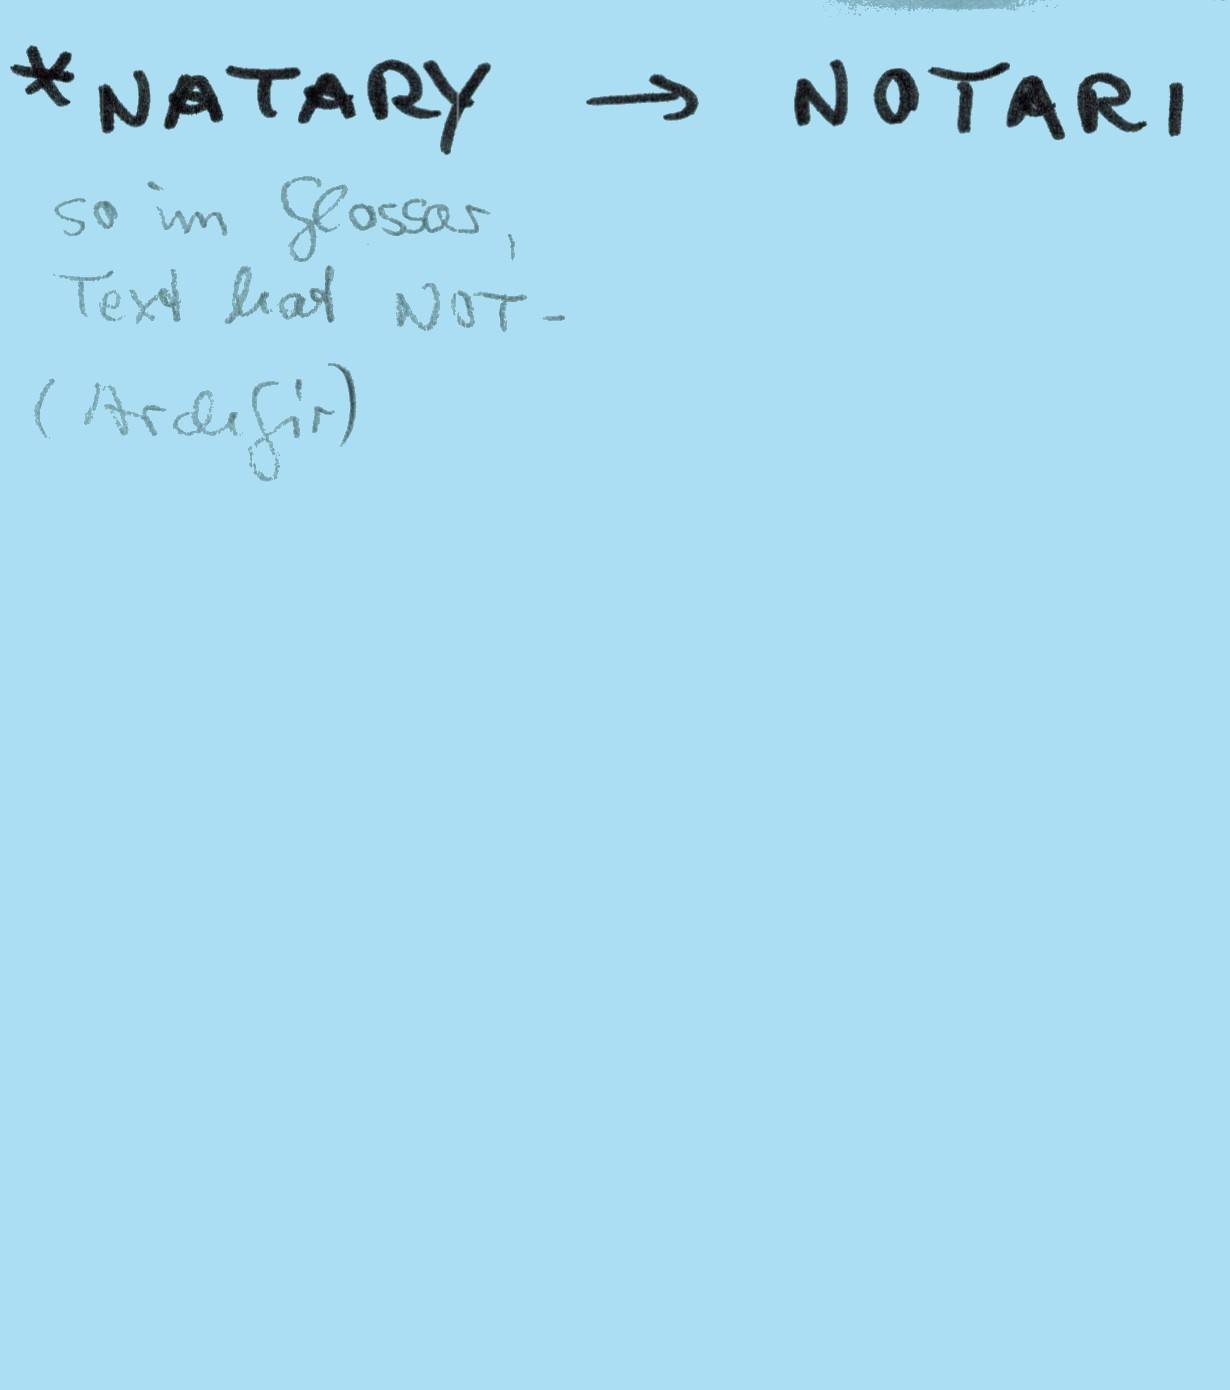 *NATARY → NOTARI
so im Glossar,
Text hat NOT-
(Archgir)